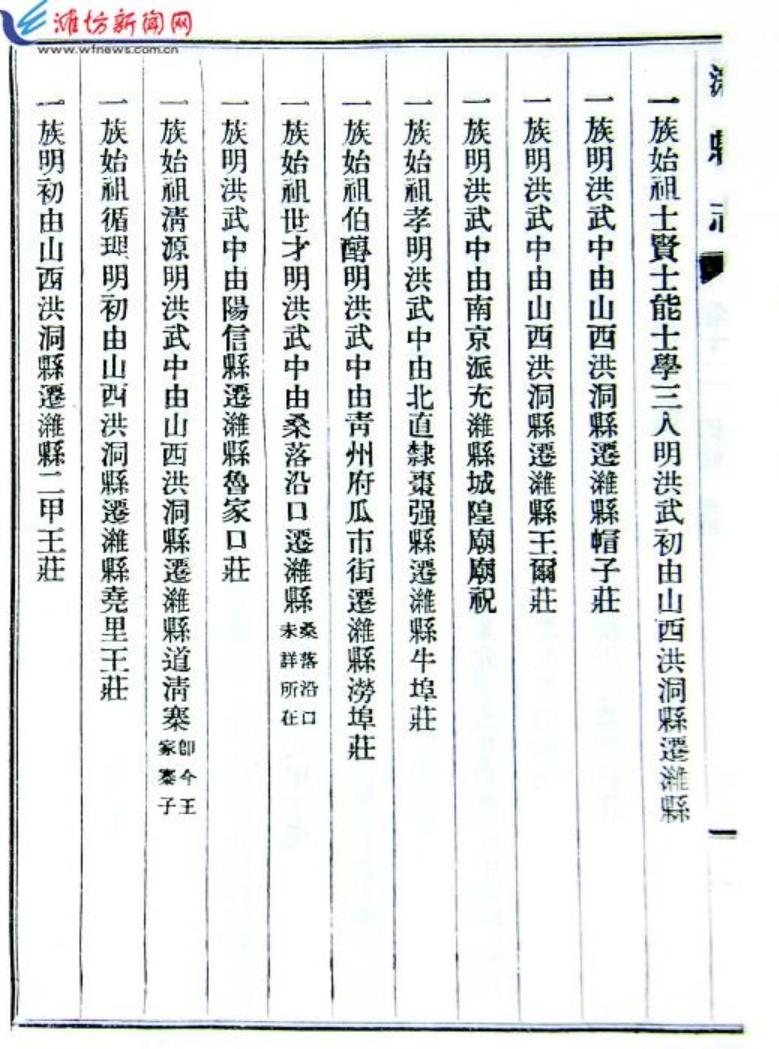 潍坊新闻网
www.wfnews.com.cn
濰縣志
一族始祖士賢士能士學三人明洪武初由山西洪洞縣遷濰縣
一族明洪武中由山西洪洞縣遷濰縣帽子莊
一族明洪武中由山西洪洞縣遷濰縣王爾莊
一族明洪武中由南京派充濰縣城隍廟廟祝
一族始祖孝明洪武中由北直隸棗强縣遷濰縣牛埠莊
一族始祖伯醇明洪武中由靑州府瓜市街遷濰縣澇埠莊
一族始祖世才明洪武中由桑落沿口遷濰縣桑落沿口未詳所在
一族明洪武中由陽信縣遷濰縣魯家口莊
一族始祖淸源明洪武中由山西洪洞縣遷濰縣道淸寨卽今王家寨子
一族始祖循理明初由山西洪洞縣遷濰縣堯里王莊
一族明初由山西洪洞縣遷濰縣二甲王莊